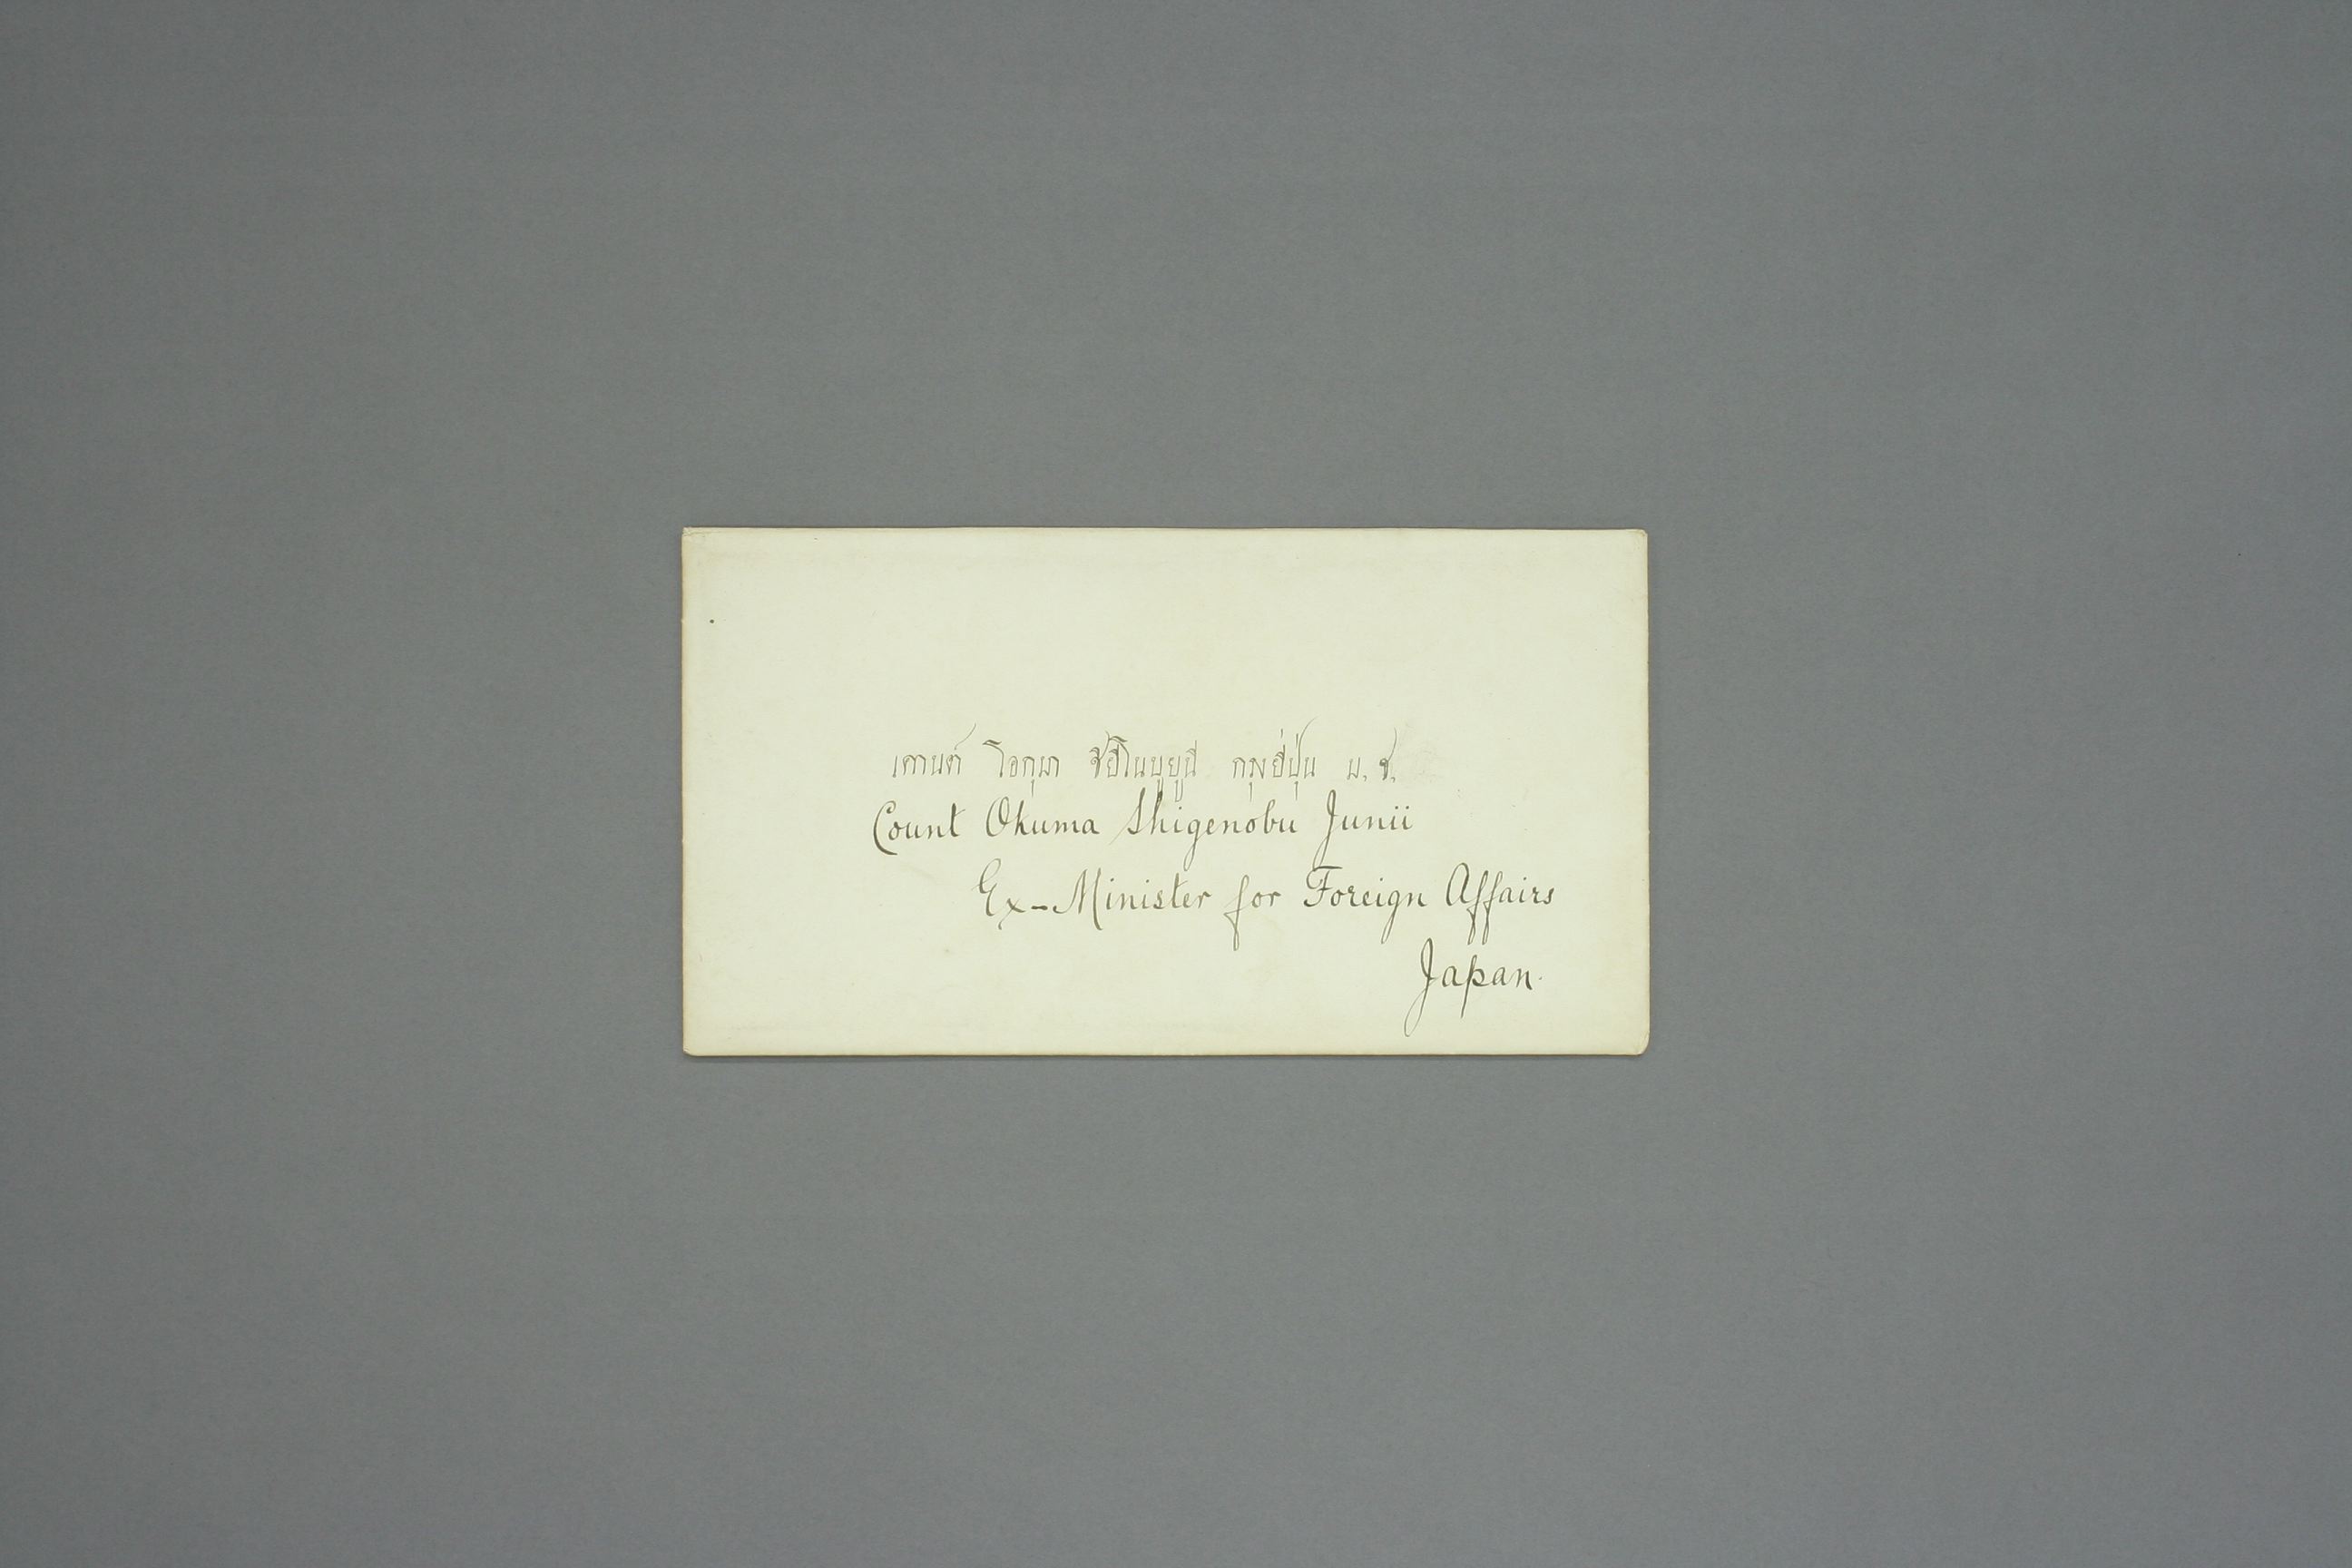 เคานต์ โอกุมา ชิยิโนบูยูนี กรุงยี่ปุ่น ม. ช.
Count Okuma Shigenobu Junii
Ex-Minister for Foreign Affairs
Japan.